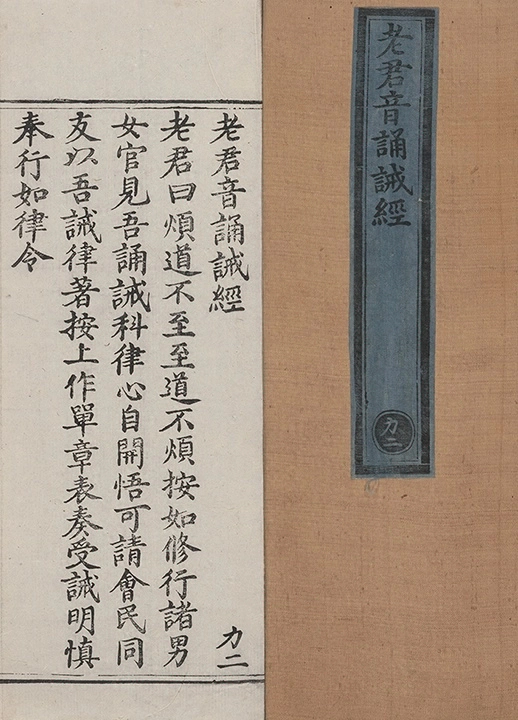 老君音誦誡經
力二
老君音誦誡經
力二
老君曰煩道不至至道不煩按如脩行諸男
女官見吾誦誡科律心自開悟可請會民同
友以吾誡律著按上作單章表奏受誡明慎
奉行如律令